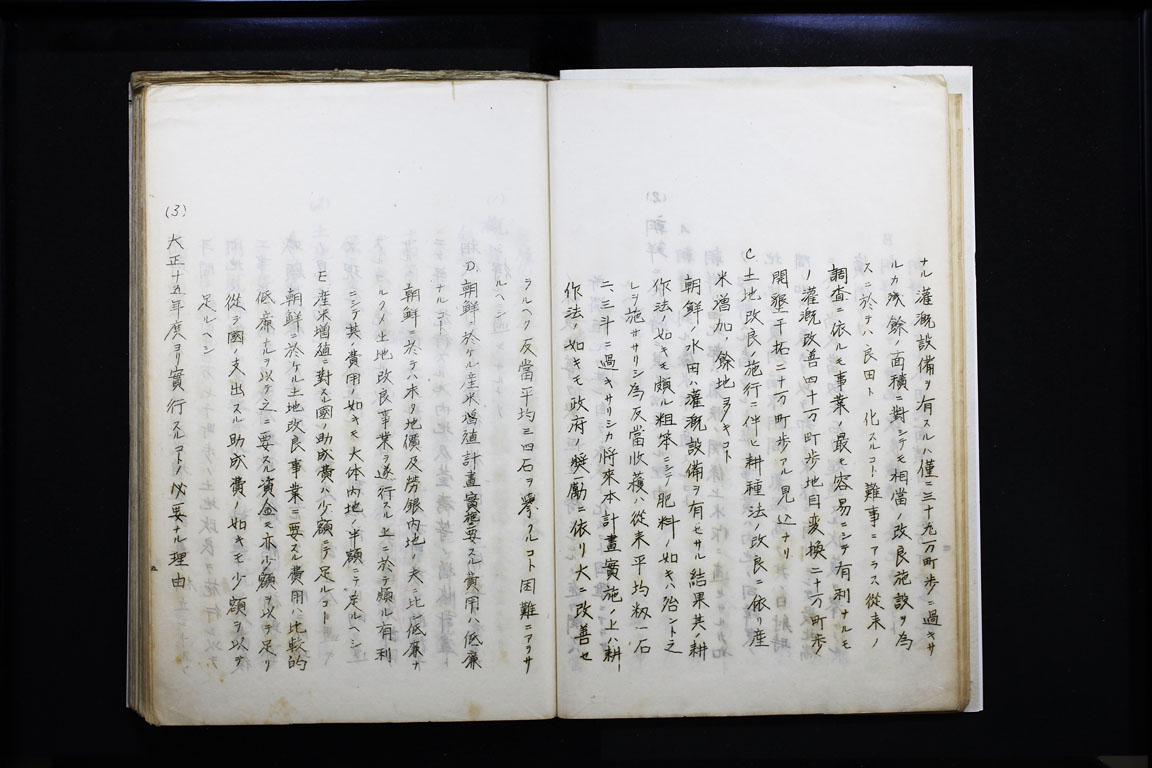 ナル灌漑設備ヲ有スルハ僅ニ三十九万町歩ニ過キサ
ルカ残餘ノ面積ニ對シテモ相當ノ改良施設ヲ為
スニ於テハ良田ト化スルコト難事ニアラス従来ノ
調査ニ依ルモ事業ノ最モ容易ニシテ有利ナルモ
ノ灌漑改善四十万町歩地目変換二十万町歩
開墾干拓二十万町歩アル見込ナリ
C.土地改良ノ施行ニ伴ヒ耕種法ノ改良ニ依リ産
米増加ノ餘地多キコト
朝鮮ノ水田ハ灌漑設備ヲ有セサル結果其ノ耕
作法ノ如キモ頗ル粗笨ニシテ肥料ノ如キハ殆ント之
レヲ施ササリシ為反當收穫ハ従来平均籾一石
二、三斗ニ過キサリシカ将来本計畫實施ノ上ハ耕
作法ノ如キモ政府ノ奨励ニ依リ大ニ改善セ
ラルヘク反當平均三四石ヲ擧クルコト困難ニアラサ
ルヘシ
D.朝鮮ニ於ケル産米増殖計畫實施ニ要スル費用ハ低廉
ナルコト
朝鮮ニ於テハ未タ地價及労銀内地ノ夫ニ比シ低廉ナ
ルタメ土地改良事業ヲ遂行スル上ニ於テ頗ル有利
ニシテ其ノ費用ノ如キモ大体内地ノ半額ニテ足ルヘシ
E.産米増殖ニ對スル國ノ助成費ハ少額ニテ足ルコト
朝鮮ニ於ケル土地改良事業ニ要スル費用ハ比較的
低廉ナルヲ以テ之ニ要スル資金モ亦少額ヲ以テ足リ
従ヲ國ノ支出スル助成費ノ如キモ少額ヲ以テ
足ルヘシ
(3)大正十五年度ヨリ實行スルコトノ必要ナル理由